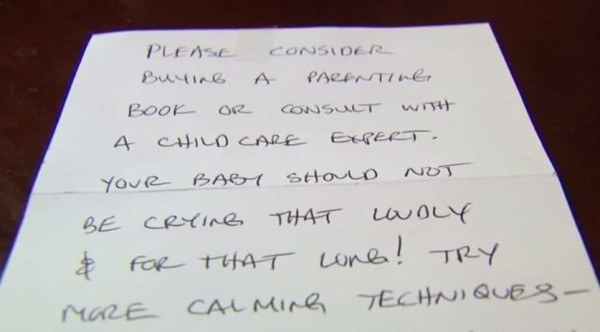 PLEASE CONSIDER
BUYING A PARENTING
BOOK OR CONSULT WITH
A CHILD CARE EXPERT.
YOUR BABY SHOULD NOT
BE CRYING THAT LOUDLY
& FOR THAT LONG! TRY
MORE CALMING TECHNIQUES-